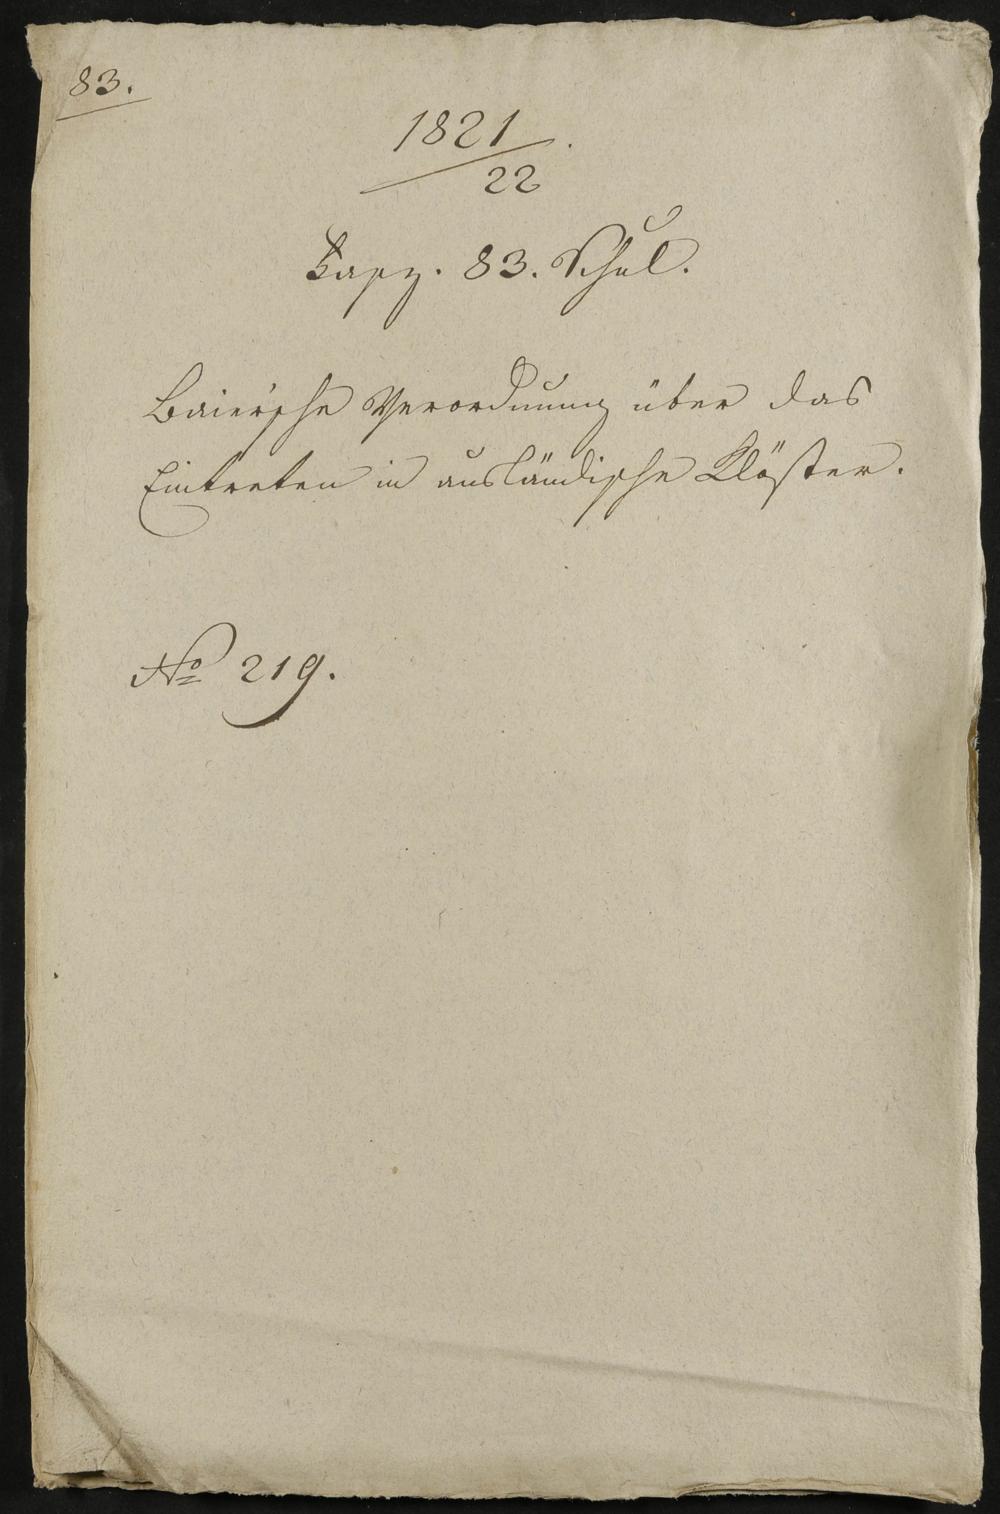 83.
1821
22
Fasz. 83. Schul.
Baier'sche Verordnung über das
Eintreten in ausländische Klöster.
No 219.